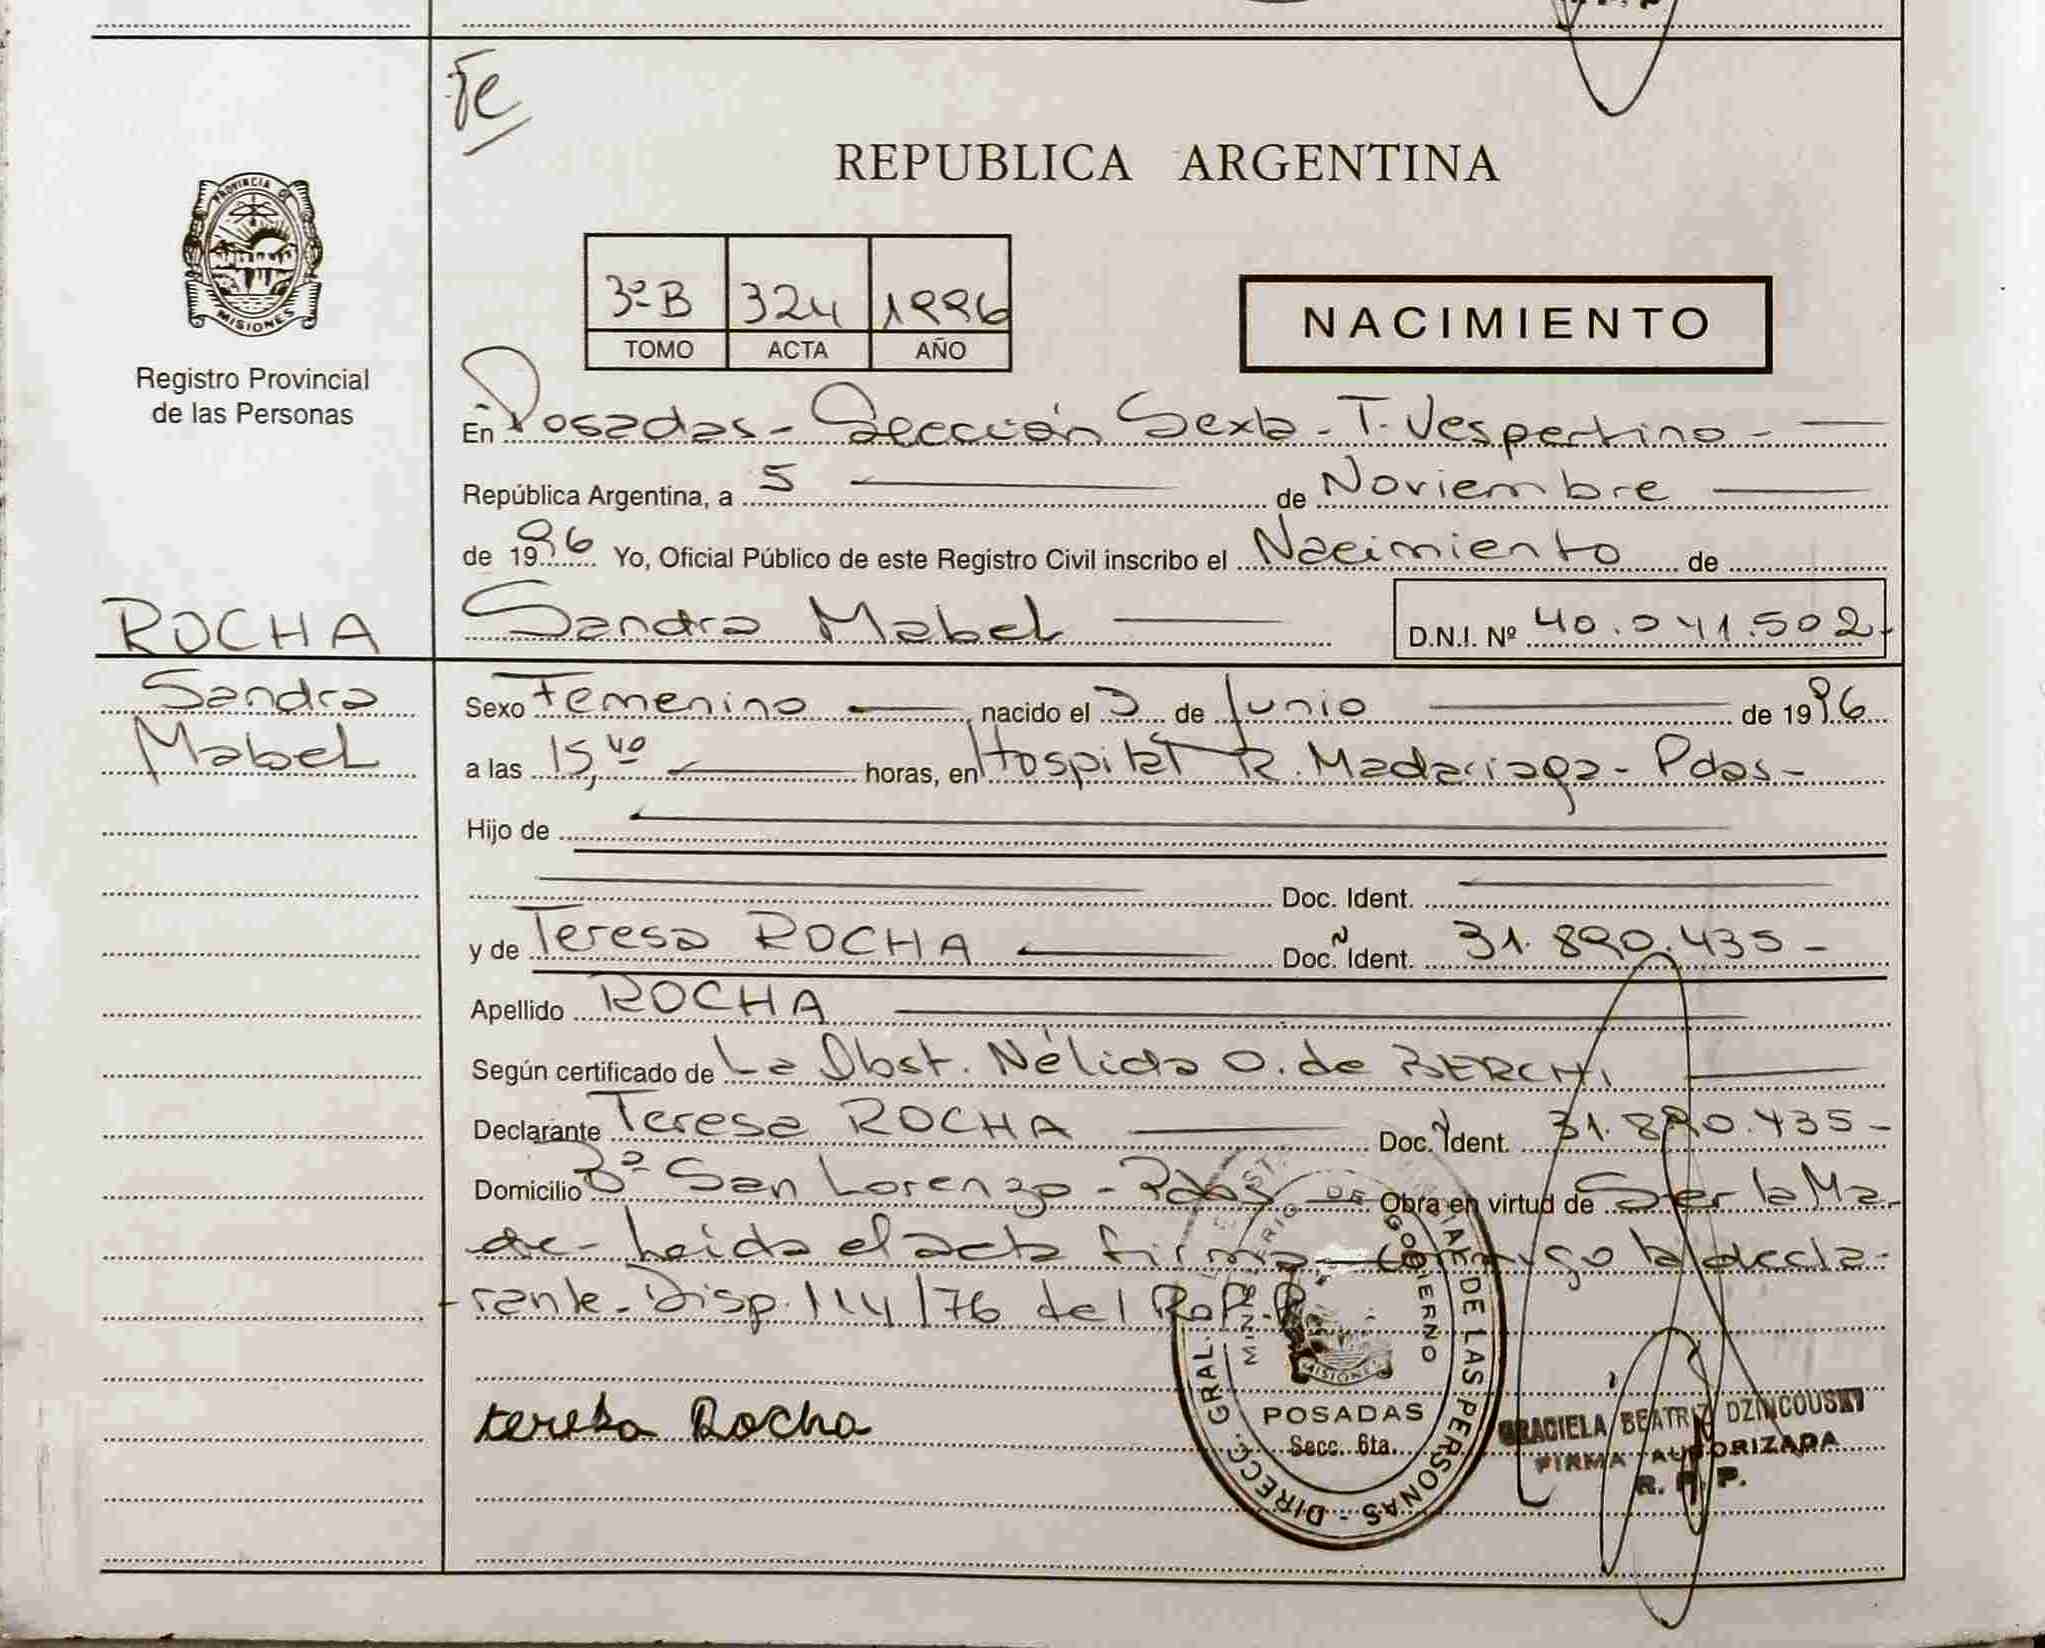 Fe
REPUBLICA ARGENTINA
PROVINCIA DE
MISIONES
Registro Provincial
de las Personas
3º B 324 1996
TOMO ACTA AÑO
NACIMIENTO
En Posadas - Sección Sexta - T. Vespertino -
República Argentina, a 5 de Noviembre
de 1996 Yo, Oficial Público de este Registro Civil inscribo el Nacimiento de
ROCHA Sandra Mabel D.N.I. Nº 40.041.502-
Sandra
Mabel
Sexo Femenino nacido el 3 de Junio de 1996
a las 15,40 horas, en Hospital R. Madariaga - Pdas -
Hijo de
Doc. Ident.
y de Teresa ROCHA Doc. Ident. 31.890.435 -
Apellido ROCHA
Según certificado de La Obst. Nélida O. de BERCHI
Declarante Teresa ROCHA Doc. Ident. 31.890.435 -
Domicilio Bº San Lorenzo - Pdas Obra en virtud de Ser la Ma-
dre - Leida el acta firma conmigo la decla-
rante - Disp. 114/76 del R.P.P.
teresa Rocha
DIRECC. GRAL. DE LAS PERSONAS
GOBIERNO
MISIONES
POSADAS
Secc. 6ta.
GRACIELA BEATRIZ DZINCOUSKY
FIRMA AUTORIZADA
R. P. P.